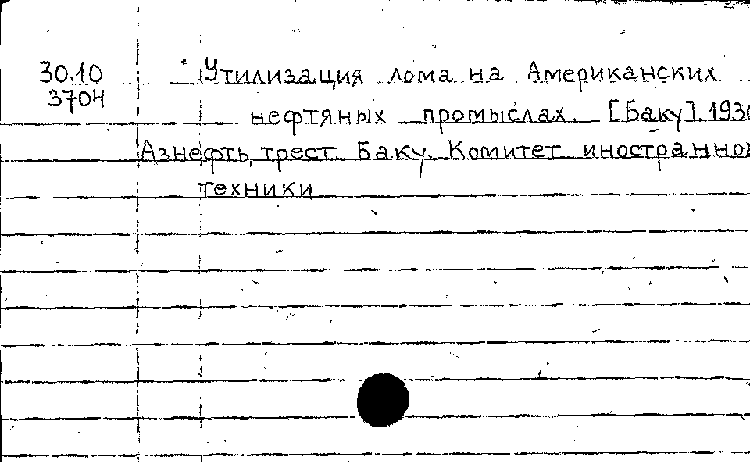 30.10 Утилизация лома на Американских
3704 нефтяных промыслах. [Баку]. 193
Азнефть, трест. Баку. Комитет иностранно
техники